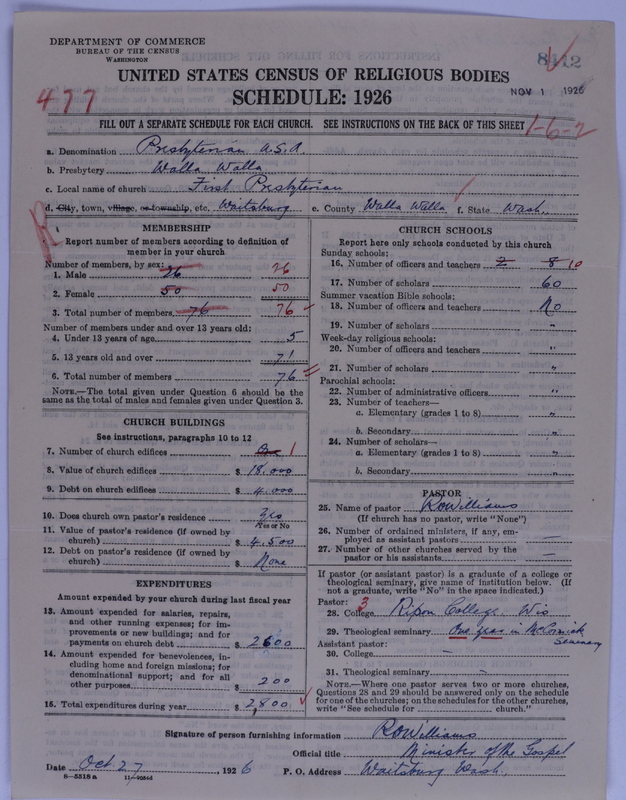 DEPARTMENT OF COMMERCE
BUREAU OF THE CENSUS
WASHINGTON
8412
UNITED STATES CENSUS OF RELIGIOUS BODIES
477
SCHEDULE: 1926
NOV 1 1926
FILL OUT A SEPARATE SCHEDULE FOR EACH CHURCH. SEE INSTRUCTIONS ON THE BACK OF THIS SHEET
1-6-2
a. Denomination Presbyterian U.S.A.
b. Presbytery Walla Walla
c. Local name of church First Presbyterian
d. City, town, village, or township, etc. Waitsburg e. County Walla Walla f. State Wash.
MEMBERSHIP
Report number of members according to definition of member in your church
Number of members, by sex:
1. Male 26 26
2. Female 50 50
3. Total number of members 76 76
Number of members under and over 13 years old:
4. Under 13 years of age 5
5. 13 years old and over 71
6. Total number of members 76
NOTE.—The total given under Question 6 should be the same as the total of males and females given under Question 3.
CHURCH BUILDINGS
See instructions, paragraphs 10 to 12
7. Number of church edifices One 1
8. Value of church edifices $ 18,000
9. Debt on church edifices $ 4,000
10. Does church own pastor's residence Yes
Yes or No
11. Value of pastor's residence (if owned by
church) $ 4,500
12. Debt on pastor's residence (if owned by
church) $ None
EXPENDITURES
Amount expended by church during last fiscal year
13. Amount expended for salaries, repairs,
and other running expenses; for im-
provements or new buildings; and for
payments on church debt $ 2600
14. Amount expended for benevolences, in-
cluding home and foreign missions; for
denominational support; and for all
other purposes $ 200
15. Total expenditures during year $ 2,800
CHURCH SCHOOLS
Report here only schools conducted by this church
Sunday schools:
16. Number of officers and teachers 2 8 10
17. Number of scholars 60
Summer vacation Bible schools:
18. Number of officers and teachers No
19. Number of scholars "
Week-day religious schools:
20. Number of officers and teachers "
21. Number of scholars "
Parochial schools:
22. Number of administrative officers "
23. Number of teachers—
a. Elementary (grades 1 to 8) "
b. Secondary "
24. Number of scholars—
a. Elementary (grades 1 to 8) "
b. Secondary "
PASTOR
25. Name of pastor R O Williams
(If church has no pastor, write "None")
26. Number of ordained ministers, if any, em-
ployed as assistant pastors —
27. Number of other churches served by the
pastor or his assistants —
If pastor (or assistant pastor) is a graduate of a college or
theological seminary, give name of institution below. (If
not a graduate, write "No" in the space indicated.)
Pastor: 3
28. College Ripon College Wis
29. Theological seminary One year in McCormick Seminary
Assistant pastor:
30. College —
31. Theological seminary —
NOTE.—Where one pastor serves two or more churches,
Questions 28 and 29 should be answered only on the schedule
for one of the churches; on the schedules for the other churches,
write "See schedule for church."
Signature of person furnishing information R O Williams
Official title Minister of the Gospel
Date Oct 27, 1926 P. O. Address Waitsburg Wash.
8—5518 a